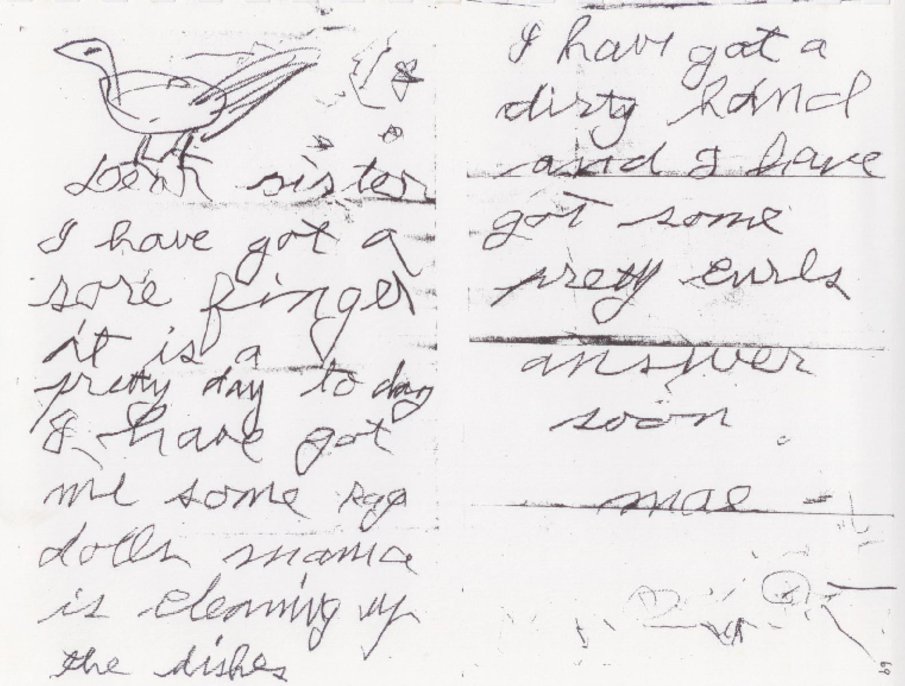 Dear sister
I have got a
sore finger
it is a
pretty day to day
I have got
me some Rags
dolls mama
is cleaning up
the dishes
I have got a
dirty hand
and I have
got some
pretty curls
answer
soon.
mae -
69